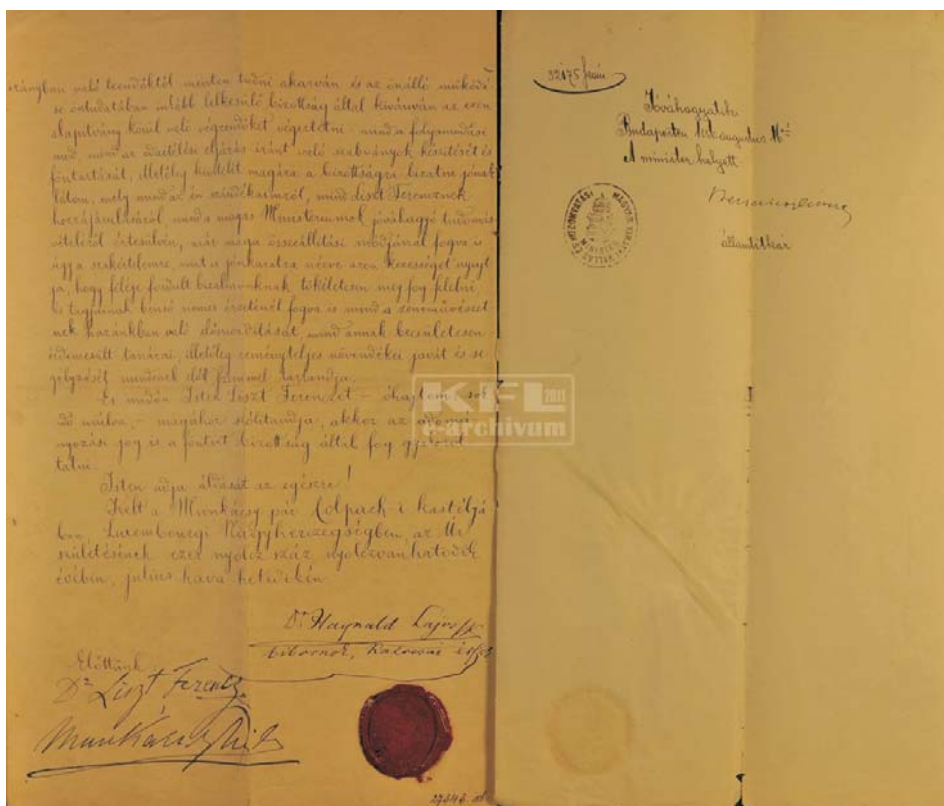 irányban való teendőktől menten tudni akarván és az önálló működé
se öntudatában inkább lelkesülő bizottság által kivánván az ezen
alapitvány körül való végzendőket végeztetni – mind a folyamodási
mind, mind az odaitélési eljárás iránt való szabványok készitését és
föntartását, illetőleg kezelését magára a bizottságra bizatni jónak
látom, mely mind az én szándékaimról, mind Liszt Ferencznek
hozzájárulásáról mind a magas Ministeriumnak jóváhagyó tudomás
vételéről értesülvén, már maga összeállitási módjánál fogva is
úgy a szakértelemre, mint a jóakaratra nézve azon kezességet nyujt
ja, hogy feléje fordult bizalmunknak tökéletesen meg fog felelni
és tagjainak benső nemes érzeténél fogva is mind a zeneművészet
nek hazánkban való előmozditását, mind annak becsületesen
érdemesült tanárai, illetőleg reményteljes növendékei javát és se
gélyzését mindenek előtt szemmel tartandja.
És midőn Isten Liszt Ferenczet – óhajtom, sok
idő mulva, – magához szólitandja, akkor az adomá
nyozási jog is a föntirt bizottság által fog gyakorol
tatni.
Isten adja áldását az egészre!
Kelt a Munkácsy pár Colpach-i kastélyá
ban, Luxembourgi Nagyherczegségben, az Úr
születésének ezer nyolcz száz nyolczvanhatodik
évében, julius hava hetedikén
Dr. Haynald Lajos
bibornok, kalocsai érsek
Előttünk
Dr Liszt Ferencz
Munkácsy
27348
KFL 2011
e-archivum
32175 szám
Jóváhagyatik
Budapesten 1886 augusztus
A minister helyett
államtitkár
MAGYAR KIRÁLYI VALLÁS ÉS KÖZOKTATÁSI